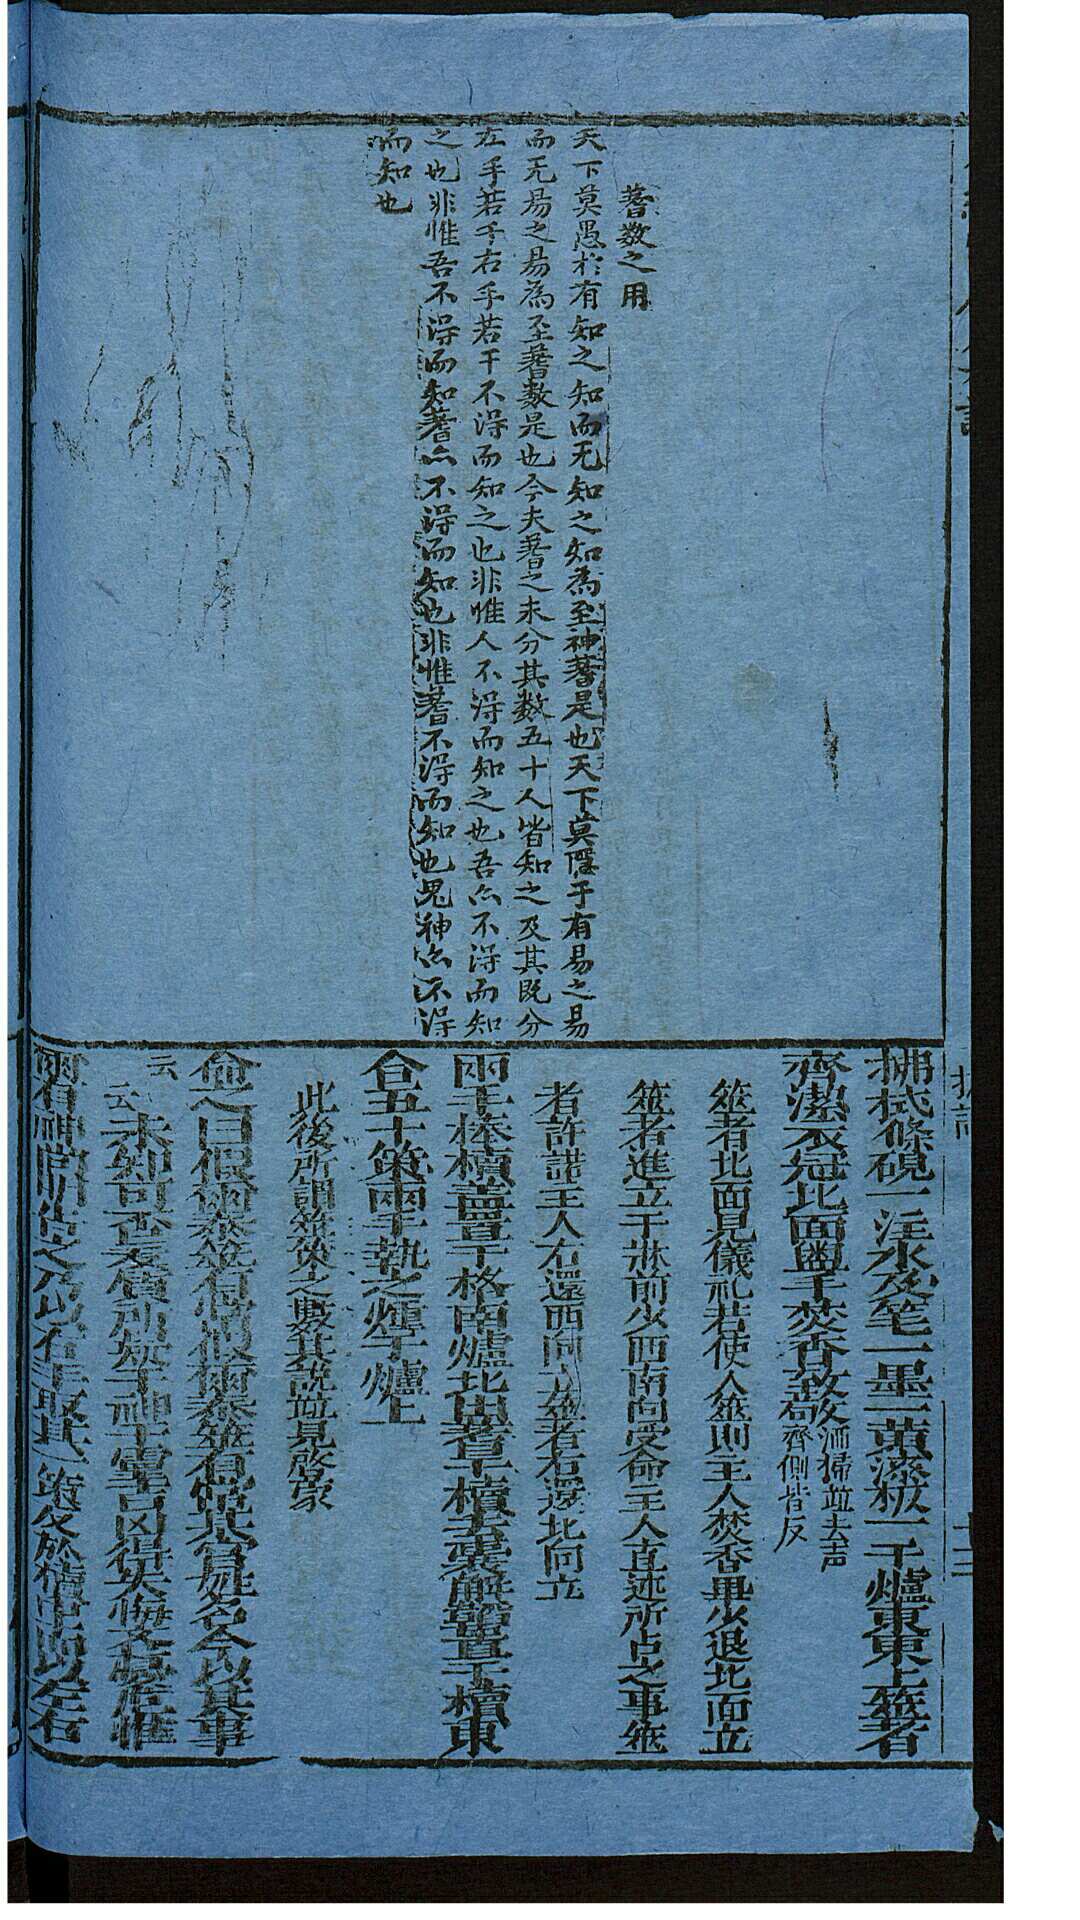 蓍数之用
天下莫愚於有知之知而无知之知為至神蓍是也天下莫隱于有易之易
而无易之易為至蓍數是也今夫蓍之未分其数五十人皆知之及其既分
左手若干右手若干不淂而知之也非惟人不淂而知之也吾亦不淂而知
之也非惟吾不淂而知蓍亦不淂而知也非惟蓍不淂而知也鬼神亦不淂
而知也
拂拭條硯一注水及笔一墨一黄漆板一于爐東東上筮者
齊潔衣冠北面盥手焚香致敬
洒掃竝去声
齊側皆反
筮者北面見儀礼若使人筮則主人焚香畢少退北面立
筮者進立于牀前少西南向受命主人直述所占之事筮
者許諾主人右還西向立筮者右還北向立
兩手捧櫝蓋置于格南爐北出蓍于櫝去囊觧韜置于櫝東
合五十策兩手執之熏于爐上
此後所謂筮策之數其說竝見啓蒙
命之曰假爾泰筮有常假爾泰筮有常某官姓名今以某事
云云未知可否爰質所疑于神于靈吉凶得失悔吝憂虞惟
爾有神尚明告之乃以右手取其一策反於櫝中而以左右